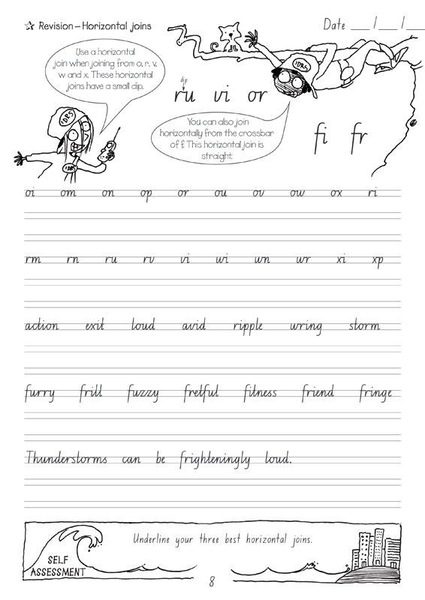 ☆ Revision–Horizontal joins
Date __/__/__
Use a horizontal
join when joining from o, r, v,
w and x. These horizontal
joins have a small dip.
dip
ru vi or
You can also join
horizontally from the crossbar
of f. This horizontal join is
straight.
fi fr
oi om on op or ou ov ow ox ri
rm rn ru rv vi wi wn wr xi xp
action exit loud avid ripple wring storm
furry frill fuzzy fretful fitness friend fringe
Thunderstorms can be frighteningly loud.
Underline your three best horizontal joins.
SELF
ASSESSMENT
8